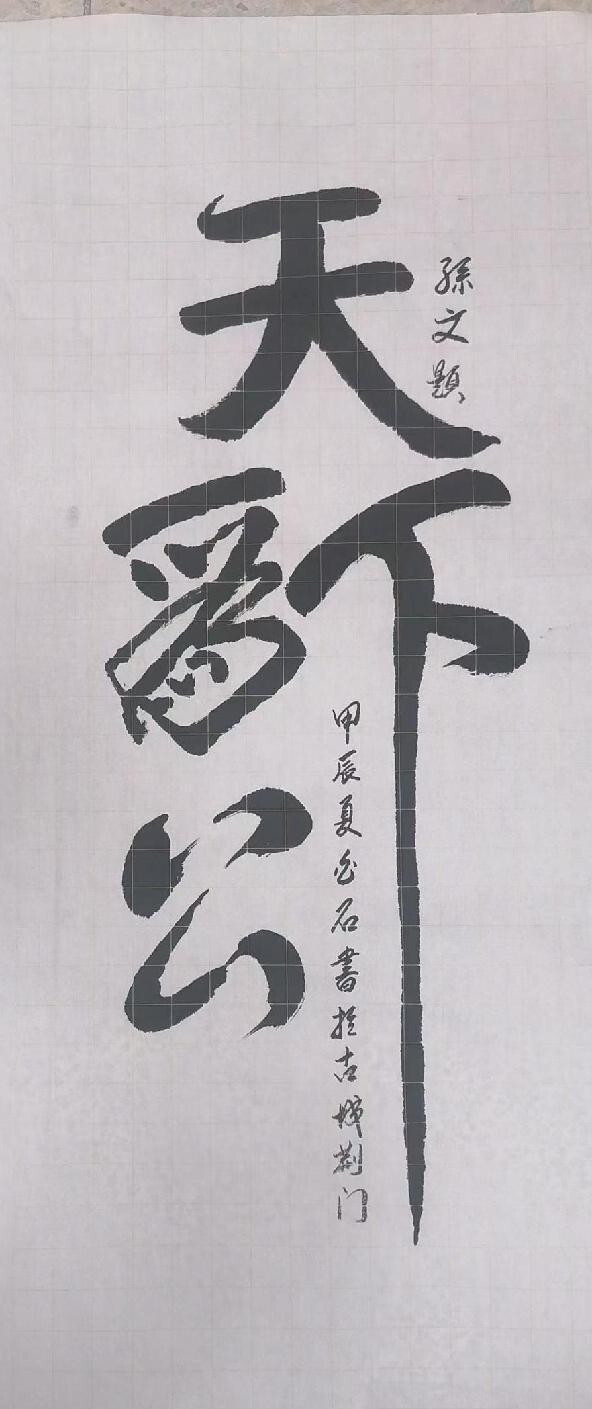 天下爲公
孫文題
甲辰夏石書於古城荆门